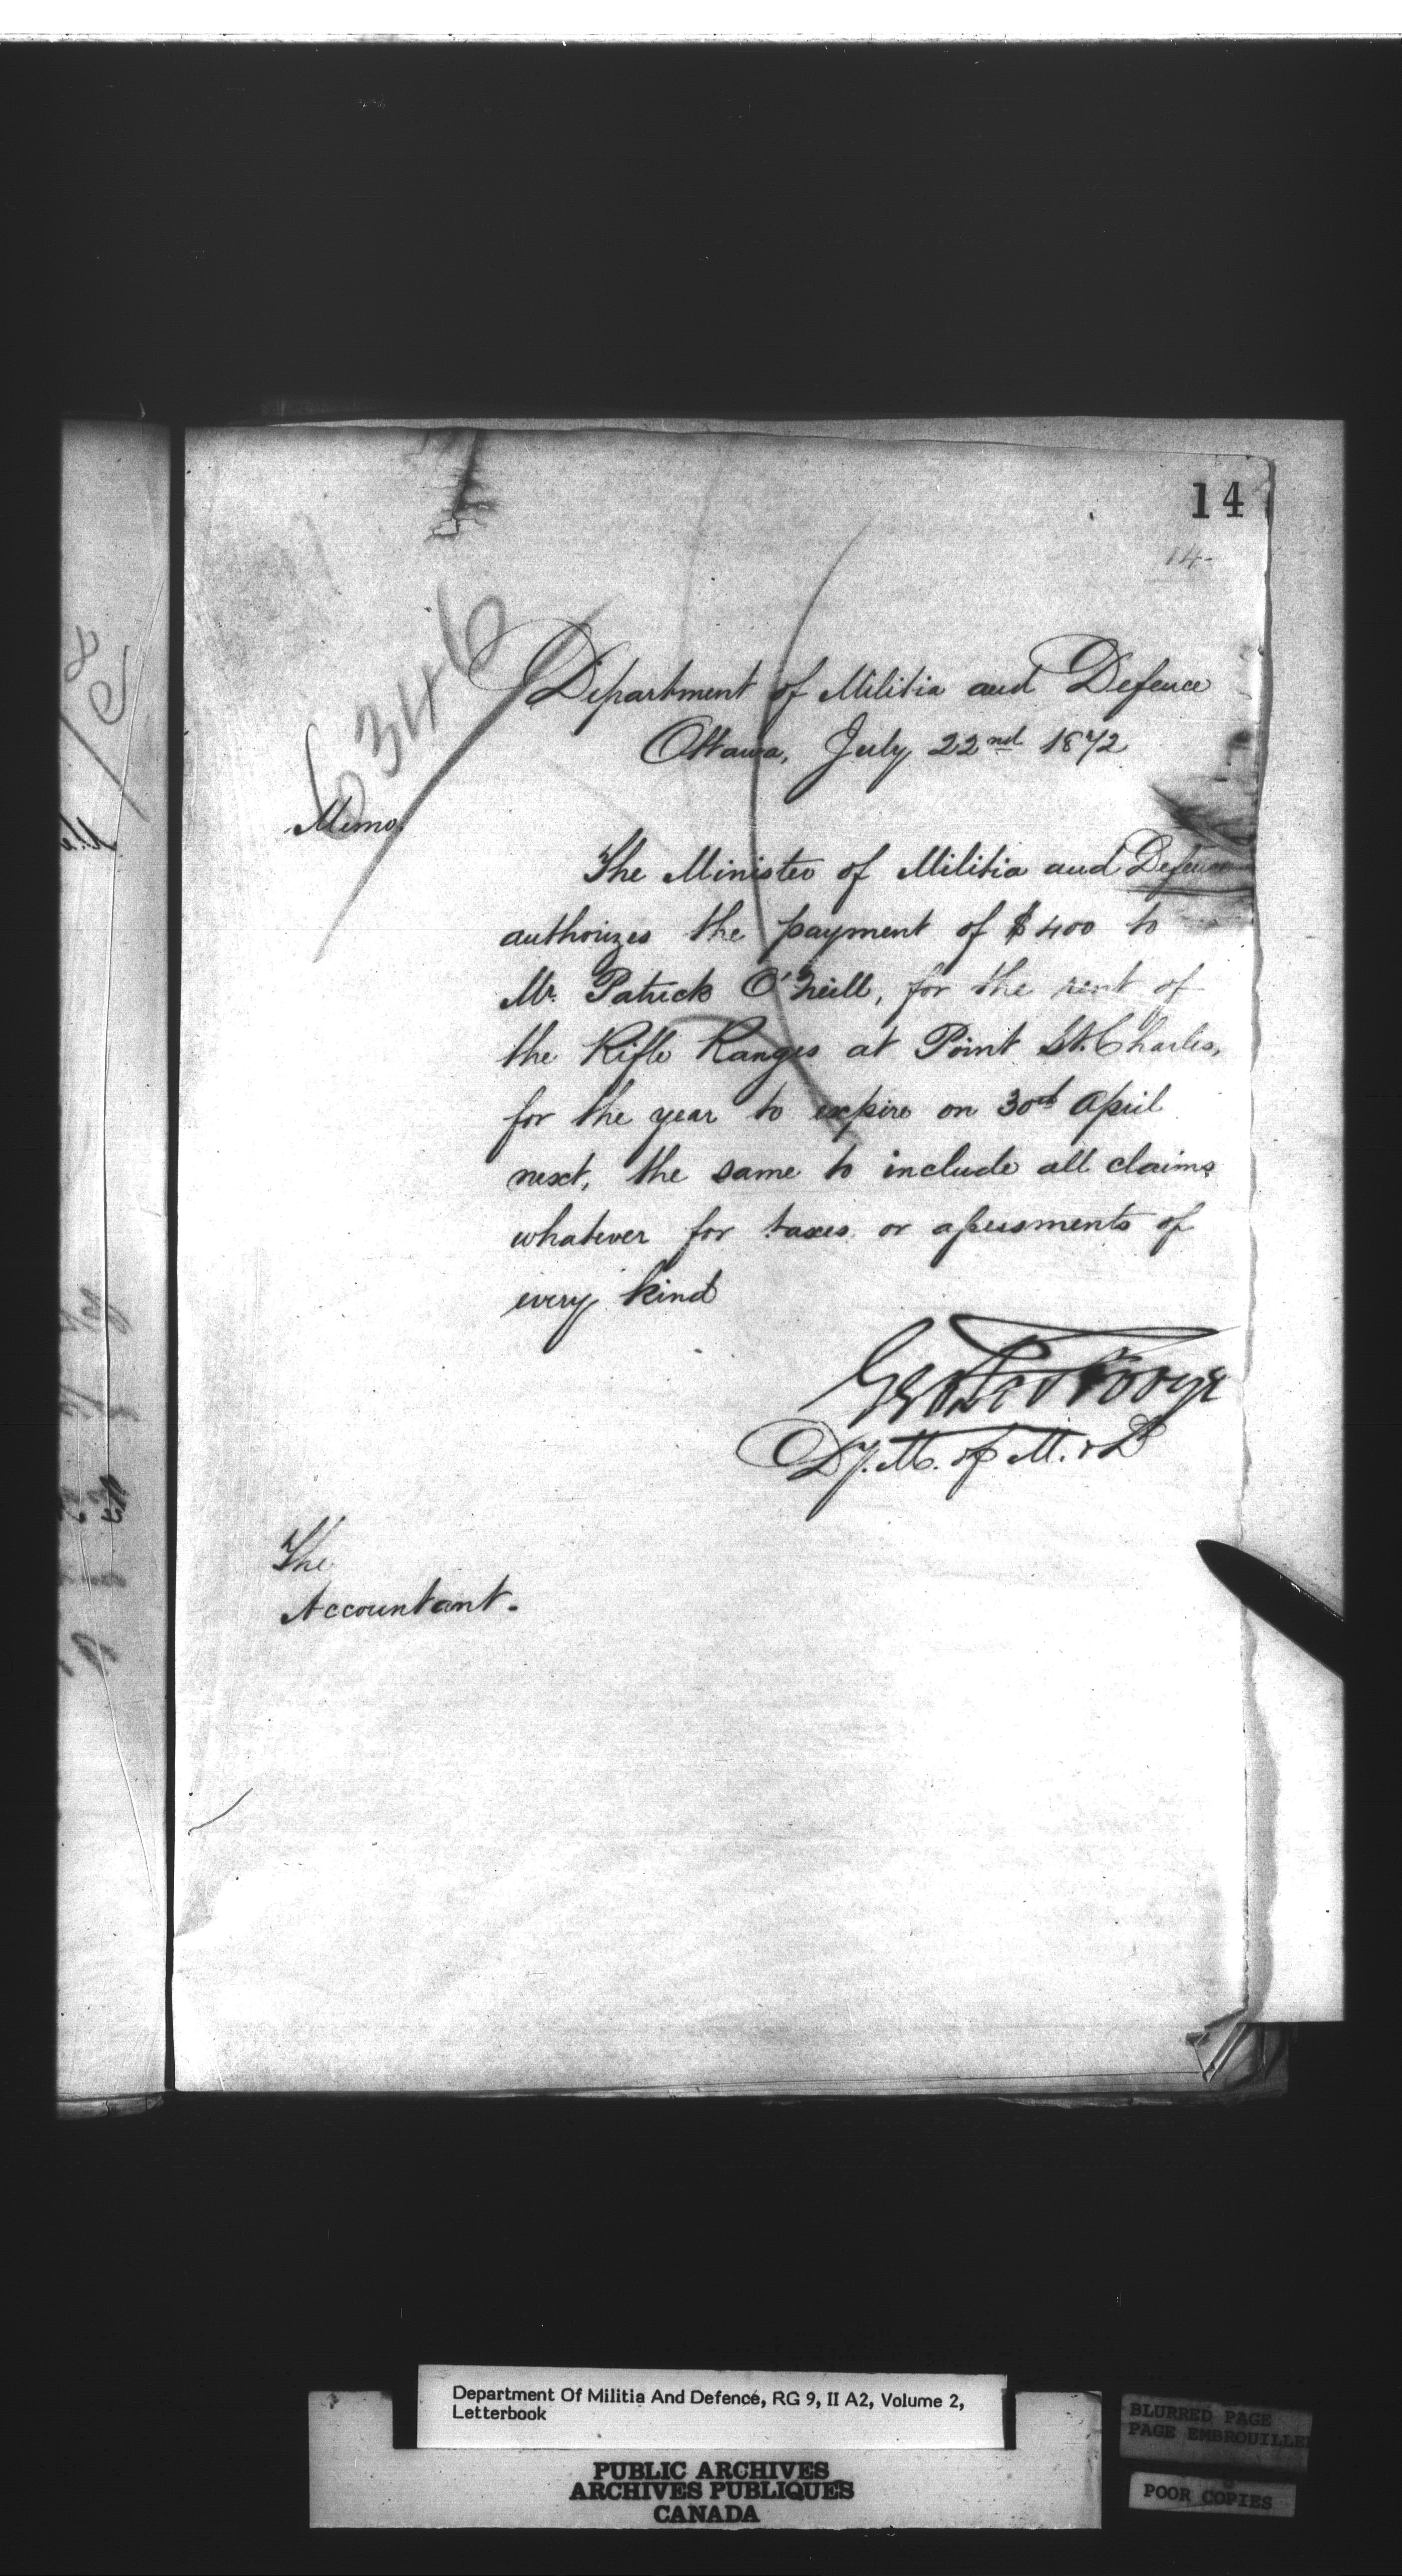 14
14-
6346
Department of Militia and Defence
Ottawa, July 22nd 1872
Memo.
The Minister of Militia and Defence
authorizes the payment of $400 to
Mr. Patrick O'Neill, for the rent of
the Rifle Ranges at Point St. Charles,
for the year to expire on 30th April
next, the same to include all claims
whatever for taxes or assessments of
every kind
Dy. M. of M. & D
The
Accountant.
Department Of Militia And Defence, RG 9, II A2, Volume 2,
Letterbook
PUBLIC ARCHIVES
ARCHIVES PUBLIQUES
CANADA
BLURRED PAGE
PAGE EMBROUILLE
POOR COPIES